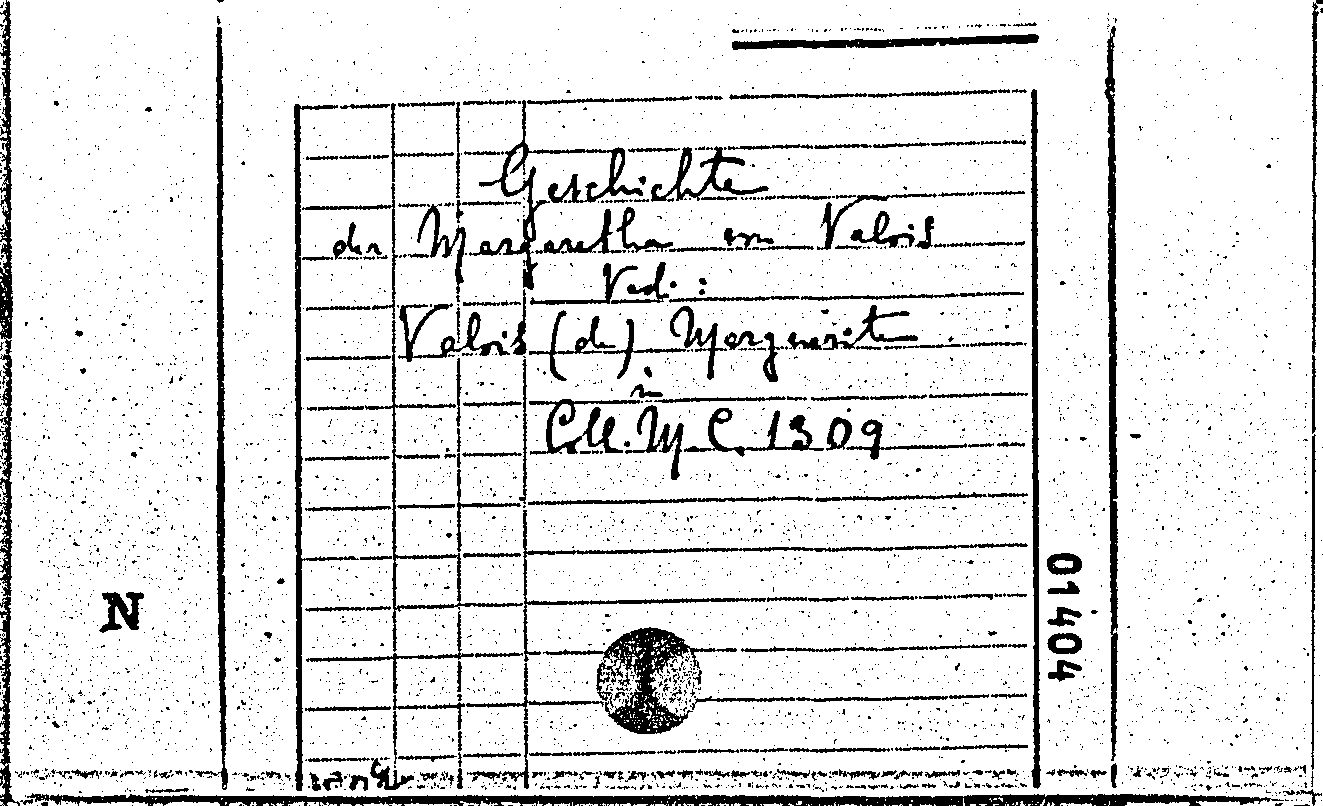 Geschichte
der Margaretha von Valois
Vedi:
Valois (de) Marguerite
in
Coll. M. C. 1309
01404
N